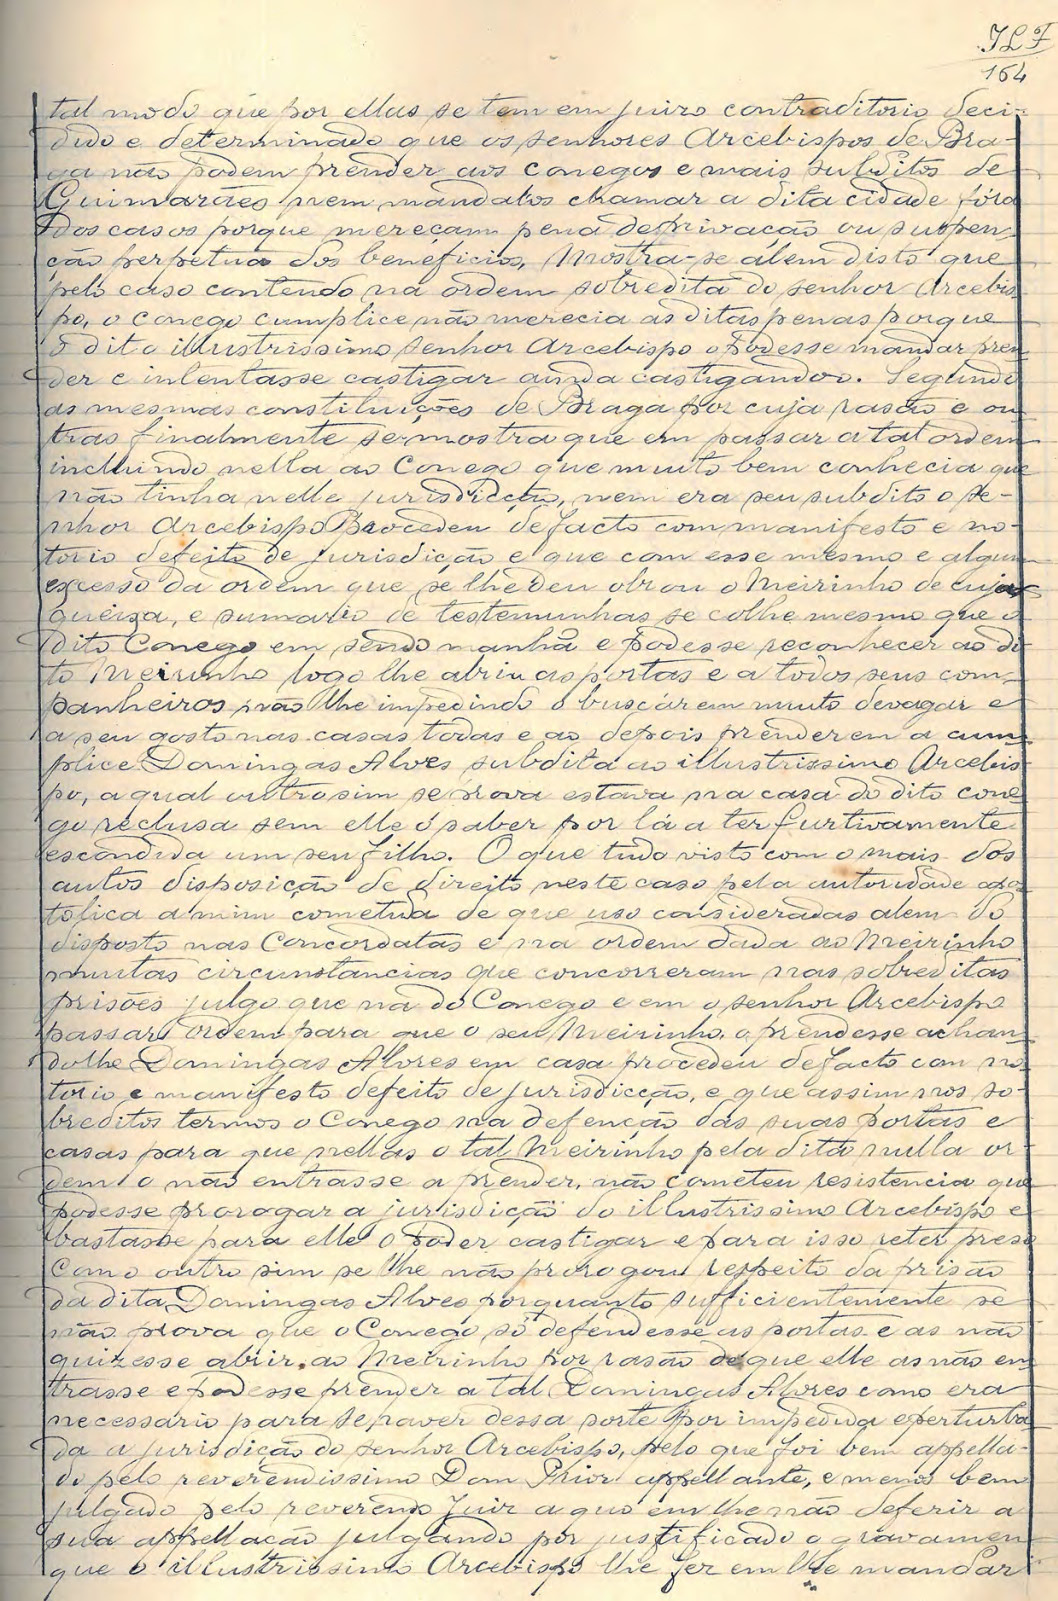 JLF
164
tal modo que por ellas se tem em juizo contraditorio deci-
dido e determinado que os senhores Arcebispos de Bra-
ga não podem prender aos conegos e mais subditos de
Guimarães nem mandalos chamar a dita cidade fóra
dos casos porque mereçam pena deprivação ou suspen-
ção perpetua dos beneficios, Mostra-se alem disto que
pelo caso contendo na ordem sobredita do senhor Arcebis
po, o conego cumplice não merecia as ditas penas porque
o dito illustrissimo senhor Arcebispo o podesse mandar pren
der e intentasse castigar ainda castigandoo. Segundo
as mesmas constituições de Braga por cuja rasão e ou
tras finalmente se mostra que em passar a tal ordem
incluindo nella ao Conego que muito bem conhecia que
não tinha nelle jurisdicção, nem era seu subdito o se-
nhor Arcebispo Procedeu defacto com manifesto e no-
torio defeito de jurisdição e que com esse mesmo e algum
excesso da ordem que se lhe deu obrou o Meirinho de cuja
queixa, e sumario de testemunhas se colhe mesmo que o
dito Conego em sendo manhã e podesse reconhecer ao di
to Meirinho logo lhe abriu as portas e a todos seus com-
panheiros não lhe impedindo o buscárem muito devagar e
a seu gosto nas casas todas e ao depois prenderem a cum
plice Domingas Alves subdita ao illustrissimo Arcebis
po, a qual outrosim se prova estava na casa do dito cone
go reclusa sem elle o saber por lá a ter furtivamente
escondida um seu filho. O que tudo visto com o mais dos
autos disposição de direito neste caso pela autoridade apos
tolica a mim cometida de que uso consideradas alem do
disposto nas Concordatas e na ordem dada ao Meirinho
muitas circunstancias que concorreram nas sobreditas
prisões julgo que na do Conego e em o senhor Arcebispo
passar ordem para que o seu Meirinho o prendesse achan
dolhe Domingas Alvres em casa procedeu defacto com no
torio e manifesto defeito de jurisdicção, e que assim nos so-
breditos termos o Conego na defenção das suas portas e
casas para que nellas o tal Meirinho pela dita nulla or-
dem o não entrasse a prender, não cometeu resistencia que
podesse prorogar a jurisdição do illustrissimo Arcebispo e
bastasse para elle o poder castigar e para isso reter preso
Como outro sim se lhe não prorogou respeito da prisão
da dita Domingas Alves porquanto sufficientemente se
não prova que o Conego só defendesse as portas e as não
quizesse abrir, ao Meirinho por rasão de que elle as não en
trasse e podesse prender a tal Domingas Alvres como era
necessario para se haver dessa sorte por impedida e perturba
da a jurisdição do senhor Arcebispo, pelo que foi bem appella-
do pelo reverendissimo Dom Prior appellante, e menos bem
julgado pelo reverendo Juiz a quo em lhe não deferir a
sua appellação julgando por justificado o gravamen
que o illustrissimo Arcebispo lhe fez em lhe mandar